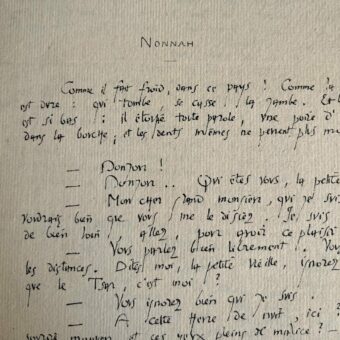 NONNAH
Comme il fait froid, dans ce pays ! Comme la
est dure : qui tombe, se casse la jambe. Et l
est si bas : il étouffe toute parole, une poire d'
dans la bouche ; et les dents mêmes ne peuvent plus m
— Bonjour !
— Bonjour .. Qui êtes vous, la petite
— Mon cher grand monsieur, qui je suis
voudrais bien que vous me le disiez. Je suis
de bien loin, allez, pour avoir ce plaisir
— Vous parlez bien librement. Vous
les distances. Dites moi, la petite vieille, ignorez
que le Tsar, c'est moi ?
— Vous ignorez bien qui je suis.
— A cette heure de nuit, ici ?
et ces yeux pleins de malice ? —